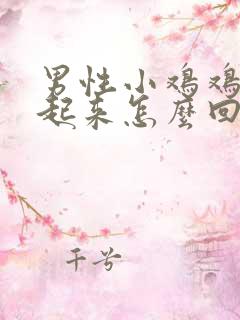 男性小鸡鸡
起来怎麽回
千兮